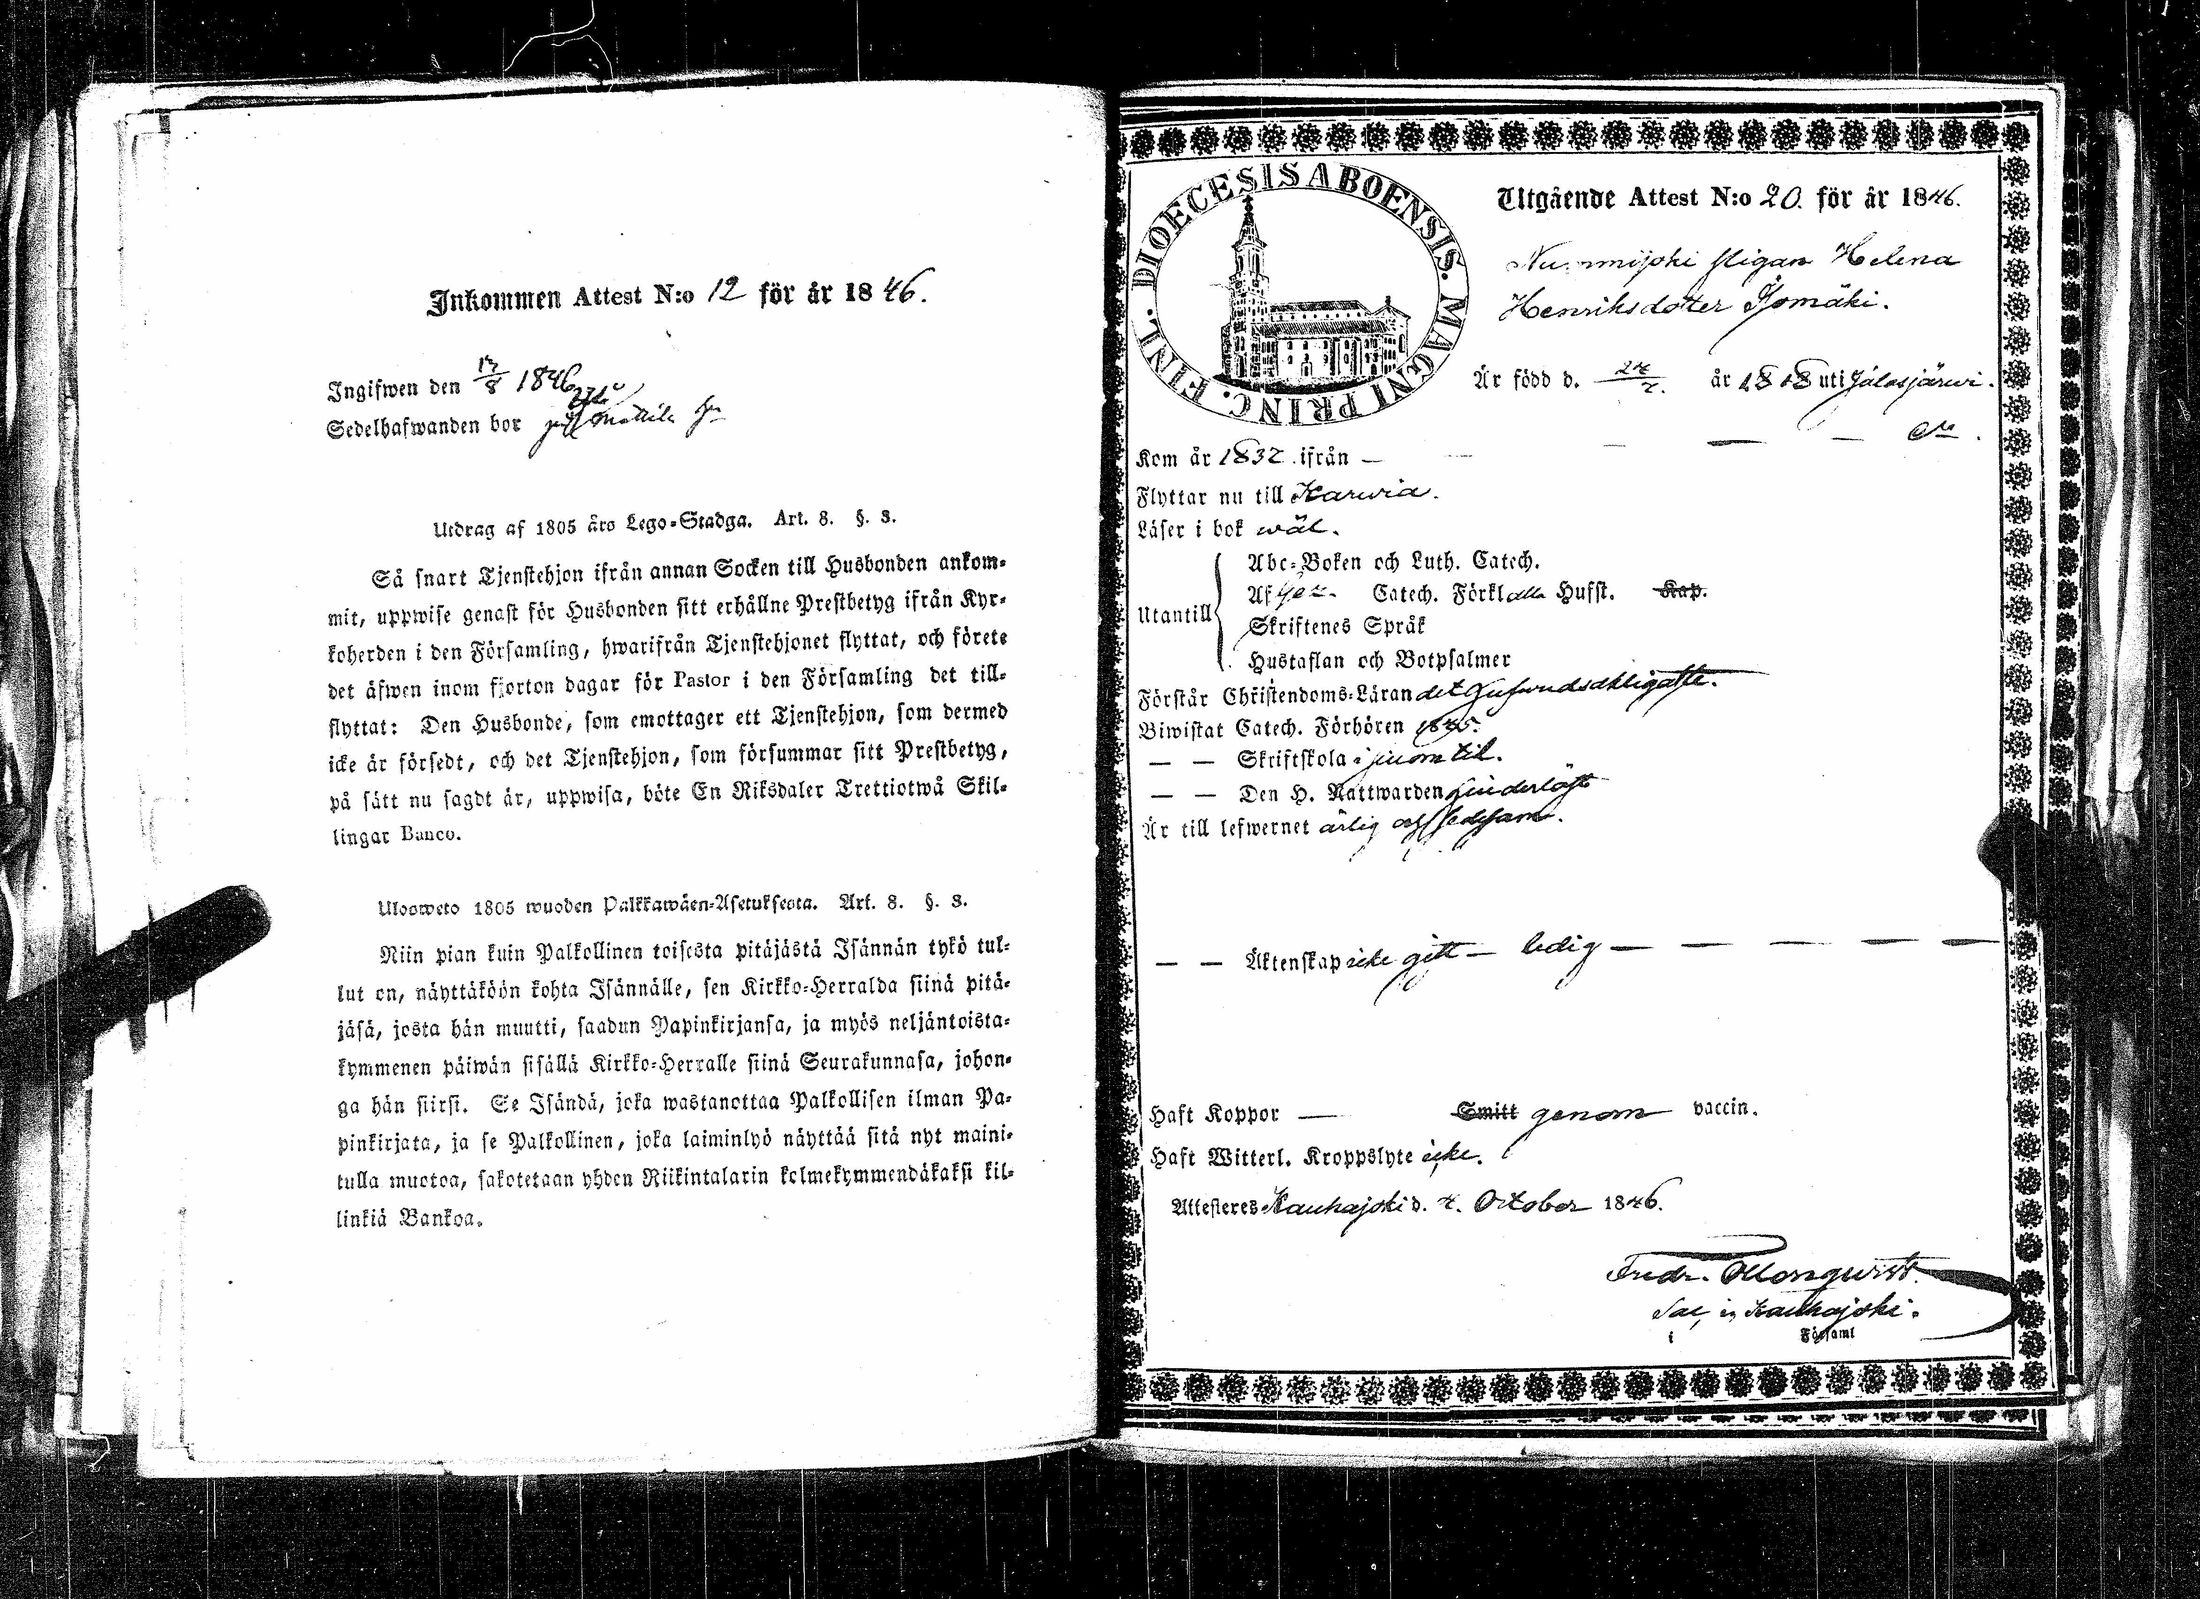 Inkommen Attest N:o 12 för år 1846.
Ingifwen den 17/8 1846
Sedelhafwanden bor Mattila
Utdrag af 1805 års Lego-Stadga. Art. 8. §. 3.
Så snart Tjenstehjon ifrån annan Socken till Husbonden ankom-
mit, uppwise genast för Husbonden sitt erhållne Prestbetyg ifrån Kyr-
koherden i den Församling, hwarifrån Tjenstehjonet flyttat, och förete
det äfwen inom fjorton dagar för Pastor i den Församling det till-
flyttat: Den Husbonde, som emottager ett Tjenstehjon, som dermed
icke är försedt, och det Tjenstehjon, som försummar sitt Prestbetyg,
på sätt nu sagdt är, uppwisa, böte En Riksdaler Trettiotwå Skil-
lingar Banco.
Ulosweto 1805 wuoden Palkkawäen-Asetuksesta. Art. 8. §. 3.
Niin pian kuin Palkollinen toisesta pitäjästä Isännän tykö tul-
lut on, näyttäköön kohta Isännälle, sen Kirkko-Herralda siinä pitä-
jäsä, josta hän muutti, saadun Papinkirjansa, ja myös neljäntoista-
kymmenen päiwän sisällä Kirkko-Herralle siinä Seurakunnasa, johon-
ga hän siirsi. Se Isändä, joka wastanottaa Palkollisen ilman Pa-
pinkirjata, ja se Palkollinen, joka laiminlyö näyttää sitä nyt maini-
tulla muotoa, sakotetaan yhden Riikintalarin kolmekymmendäkaksi kil-
linkiä Bankoa.
DIOECESIS ABOENSIS. MAGNI PRINC. FINL.
Utgående Attest N:o 20. för år 1846.
Nummijoki Pigan Helena
Henriksdotter Jjomäki.
Är född d. år 1808 uti Jalasjärwi.
Kom år 1832 ifrån —
Flyttar nu till Karwia.
Läser i bok wäl.
Utantill
Abc-Boken och Luth. Catech.
Af Catech. Förkl alla Hufst. Kap.
Skriftenes Språk
Hustaflan och Botpsalmer
Förstår Christendoms-Läran det hufwudsakligaste.
Biwistat Catech. Förhören 1845.
— — Skriftskola
— — Den H. Nattwarden
Är till lefwernet ärlig och sedesam.
— — Äktenskap icke gift — ledig — — — — —
Haft Koppor — Smitt genom vaccin.
Haft Witterl. Kroppslyte icke.
Attesteres Kauhajoki d. 4. October 1846.
Fredr.
Sac. in Kauhajoki.
i Församl